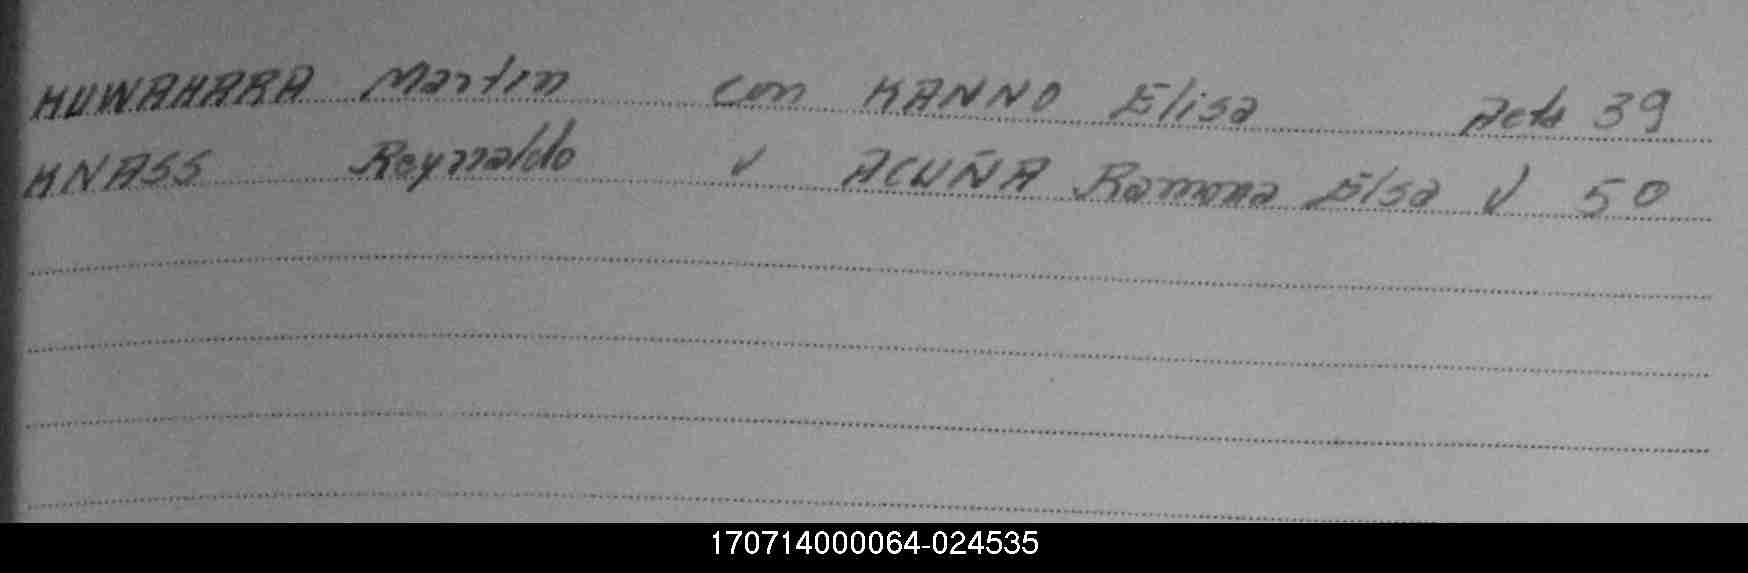 KUWAHARA Martin con KANNO Elisa Acta 39
KNASS Reynaldo √ ACUÑA Ramona Elsa √ 50
170714000064-024535